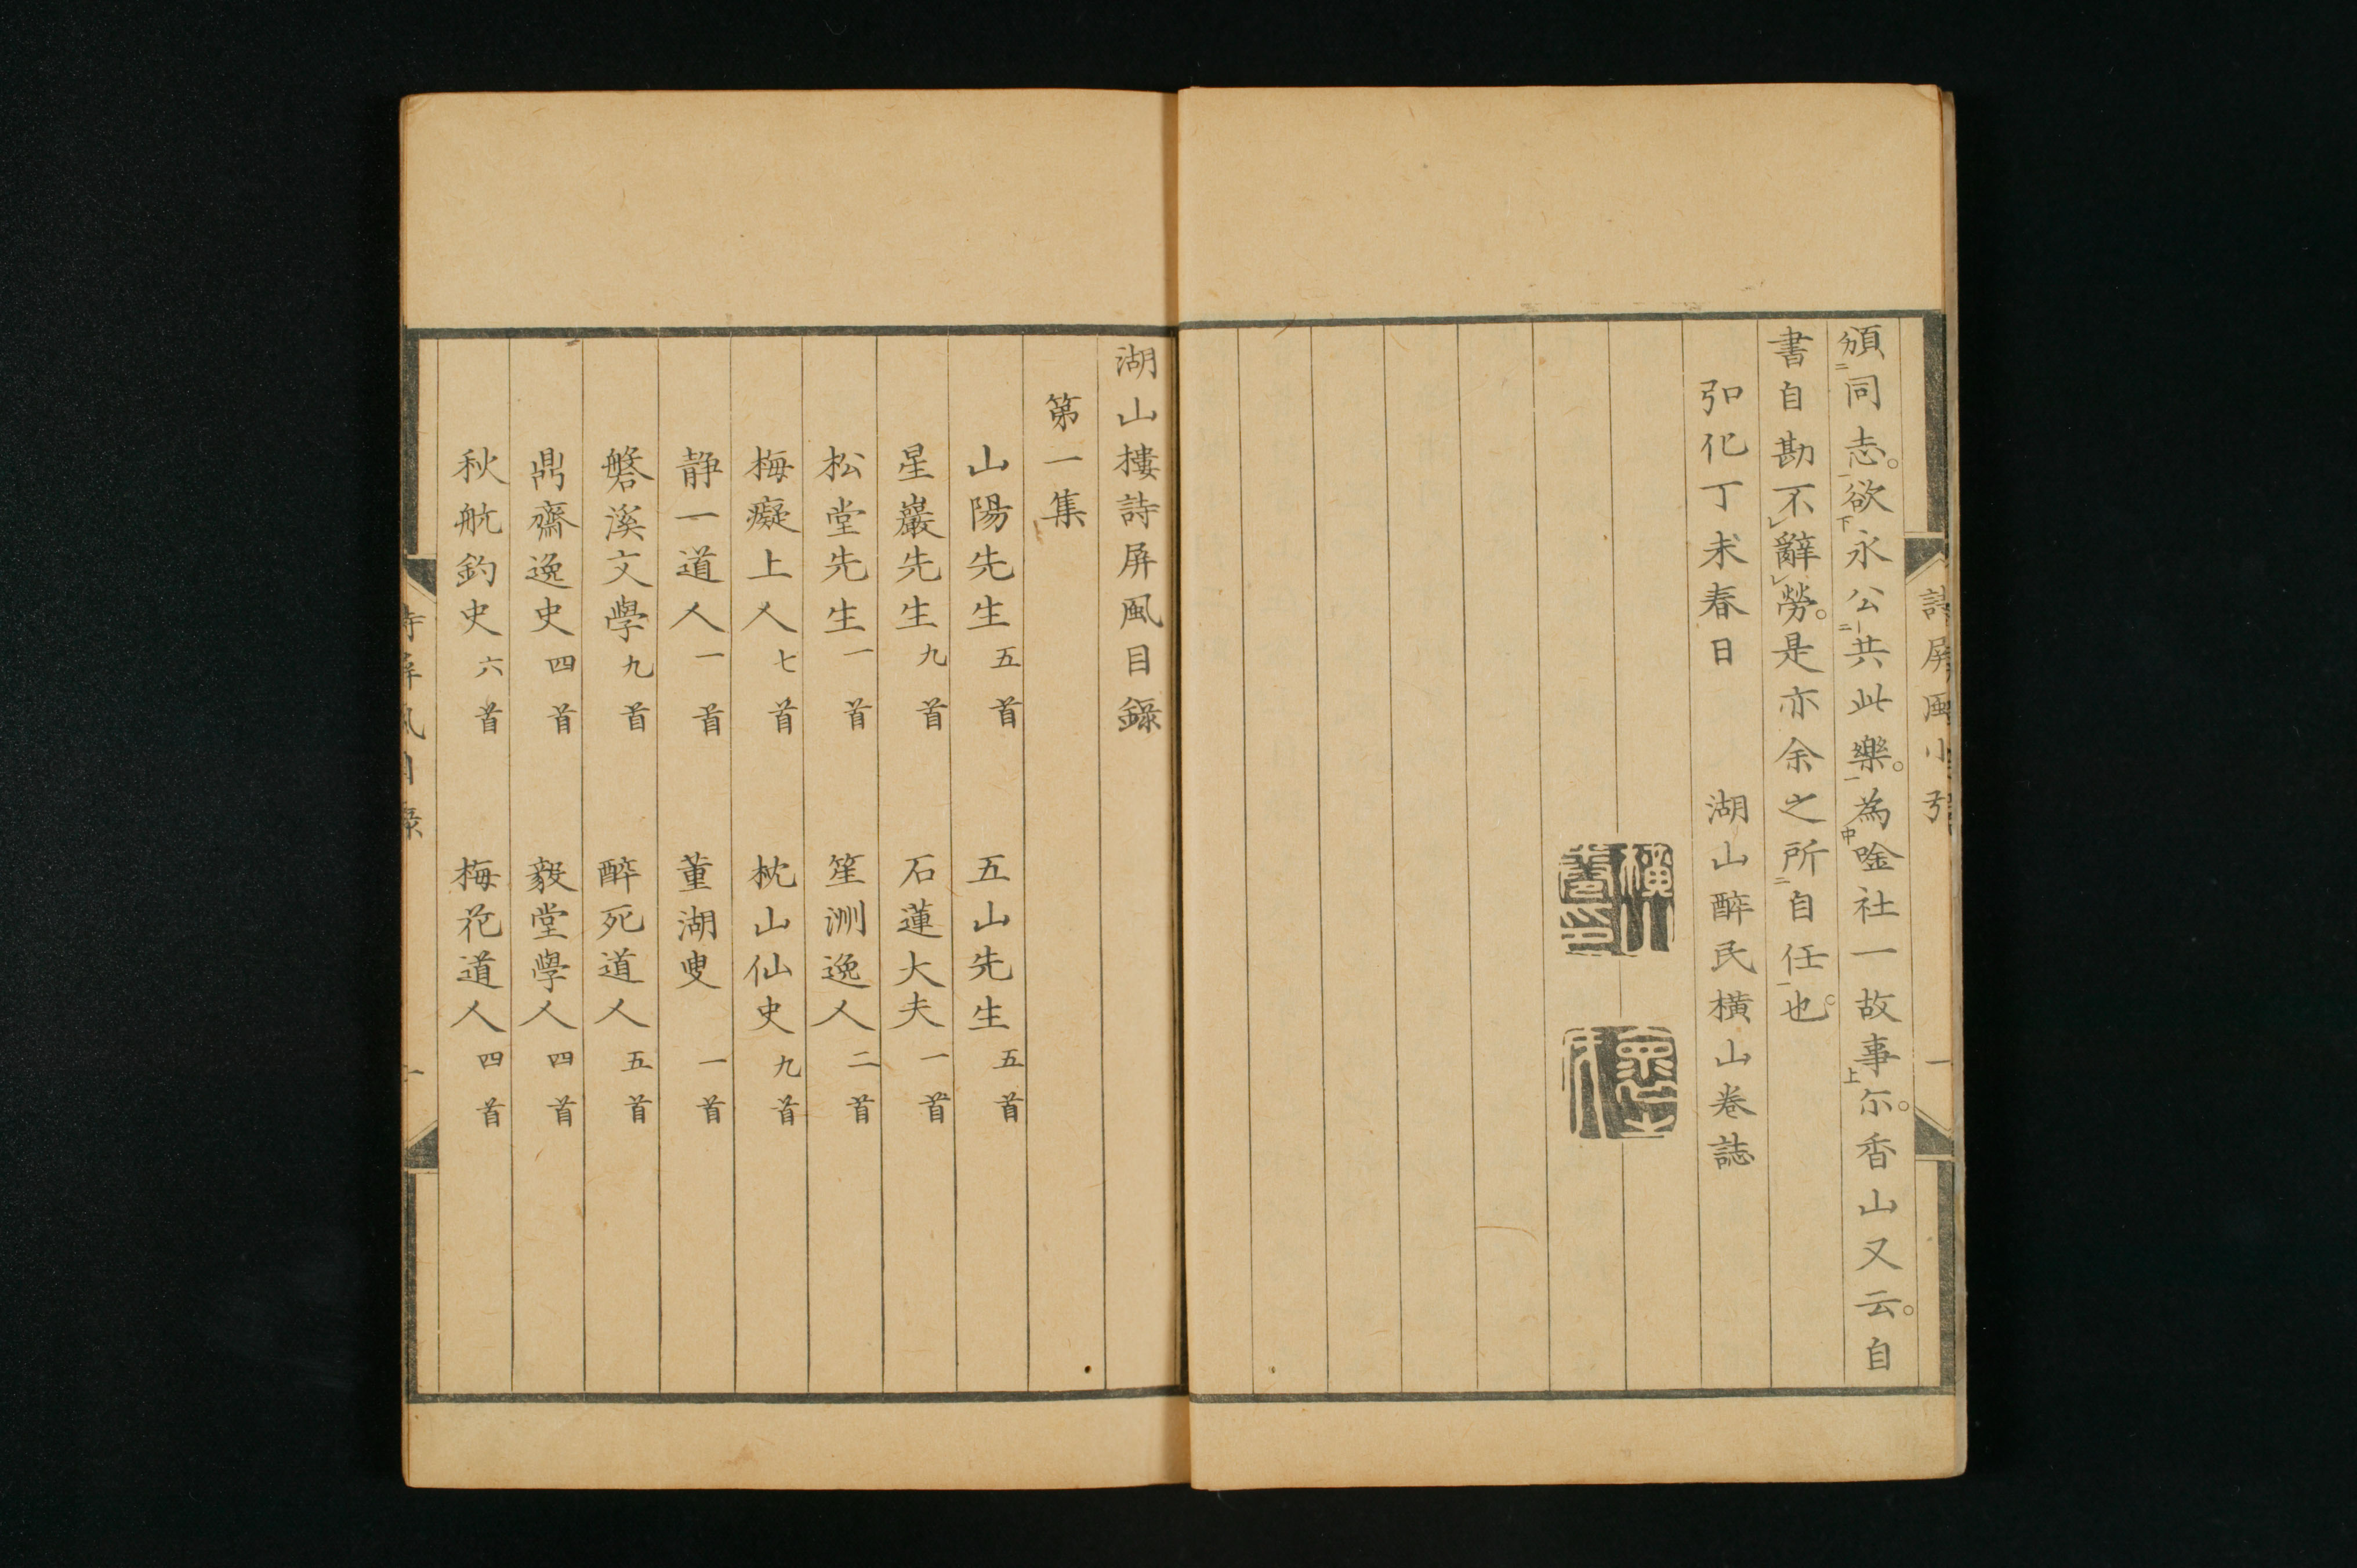 詩屏風小引 一
頒同志。欲永公共此樂。為唫社一故事尓。香山又云。自
書自勘不辭勞。是亦余之所自任也。
弘化丁未春日 湖山醉民橫山卷誌
湖山樓詩屏風目錄
第一集
山陽先生 五首 五山先生 五首
星巖先生 九首 石蓮大夫 一首
松堂先生 一首 笙洲逸人 二首
梅癡上人 七首 枕山仙史 九首
静一道人 一首 董湖叟 一首
磐溪文學 九首 醉死道人 五首
鼎齋逸史 四首 毅堂學人 四首
秋航釣史 六首 梅花道人 四首
詩屏風目錄 一